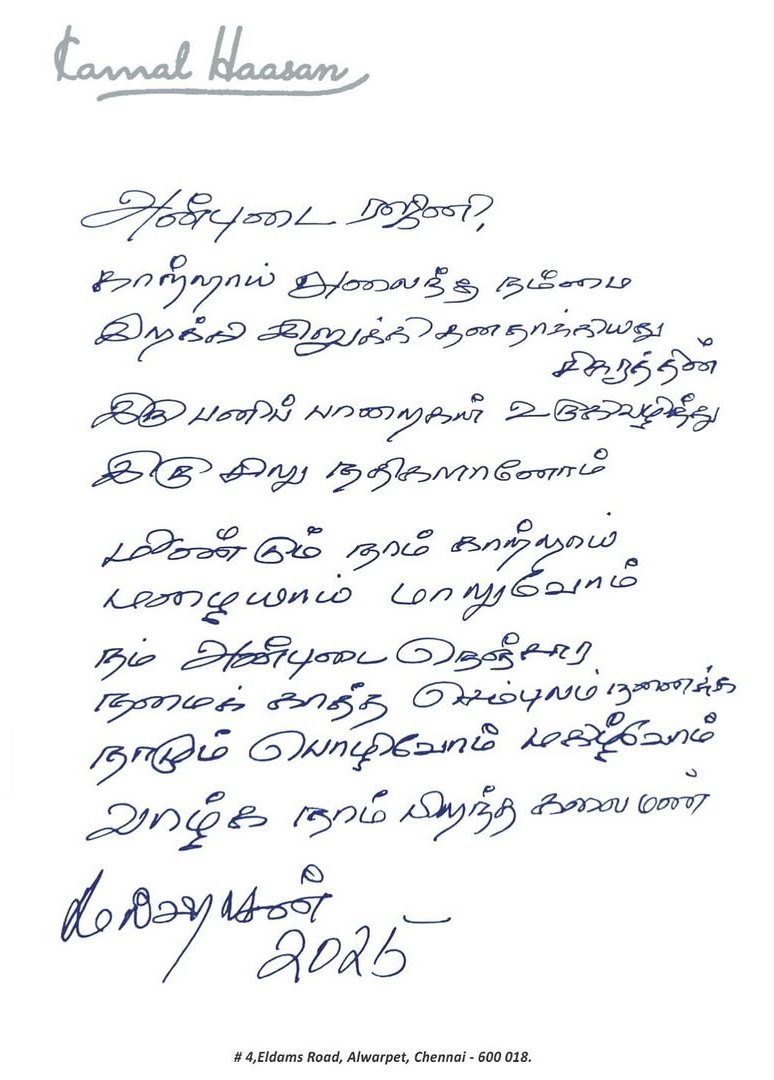 Kamal Haasan
அன்புடை ரஜினி,
காற்றாய் அலைந்த நம்மை
இறக்கி இறுக்கி தனதாக்கியது
சிகரத்தின்
இரு பனிப் பாறைகள் உருகிவழிந்து
இரு சிறு நதிகளானோம்
மீண்டும் நாம் காற்றாய்
மழையாய் மாறுவோம்
நம் அன்புடை நெஞ்சார
நமைக் காத்த செம்புலம் நனைக்க
நாடும் பொழிவோம் மகிழ்வோம்
வாழ்க நாம் பிறந்த கலைமண்
2025
# 4,Eldams Road, Alwarpet, Chennai - 600 018.